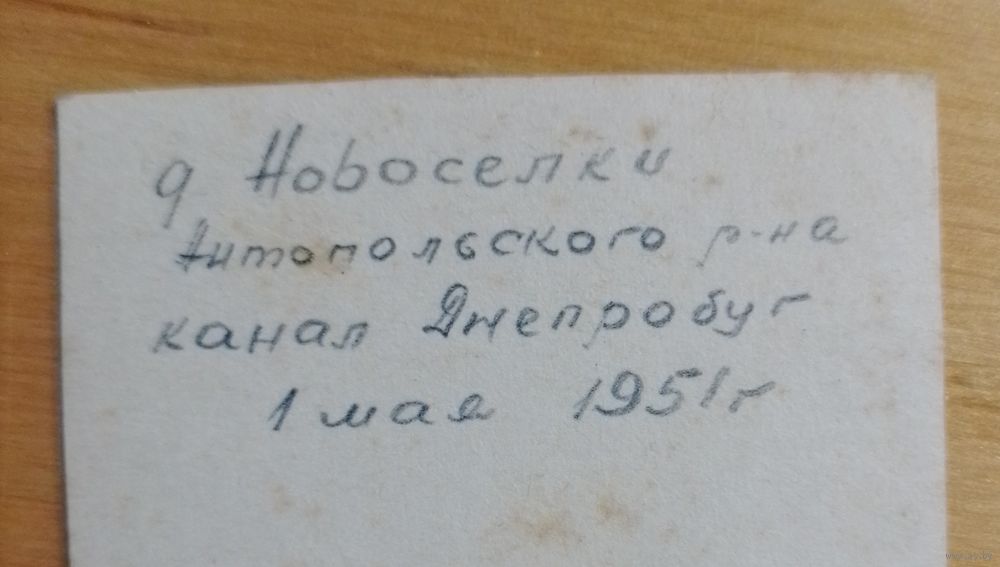 д Новоселки
Антопольского р-на
канал Днепробуг
1 мая 1951г